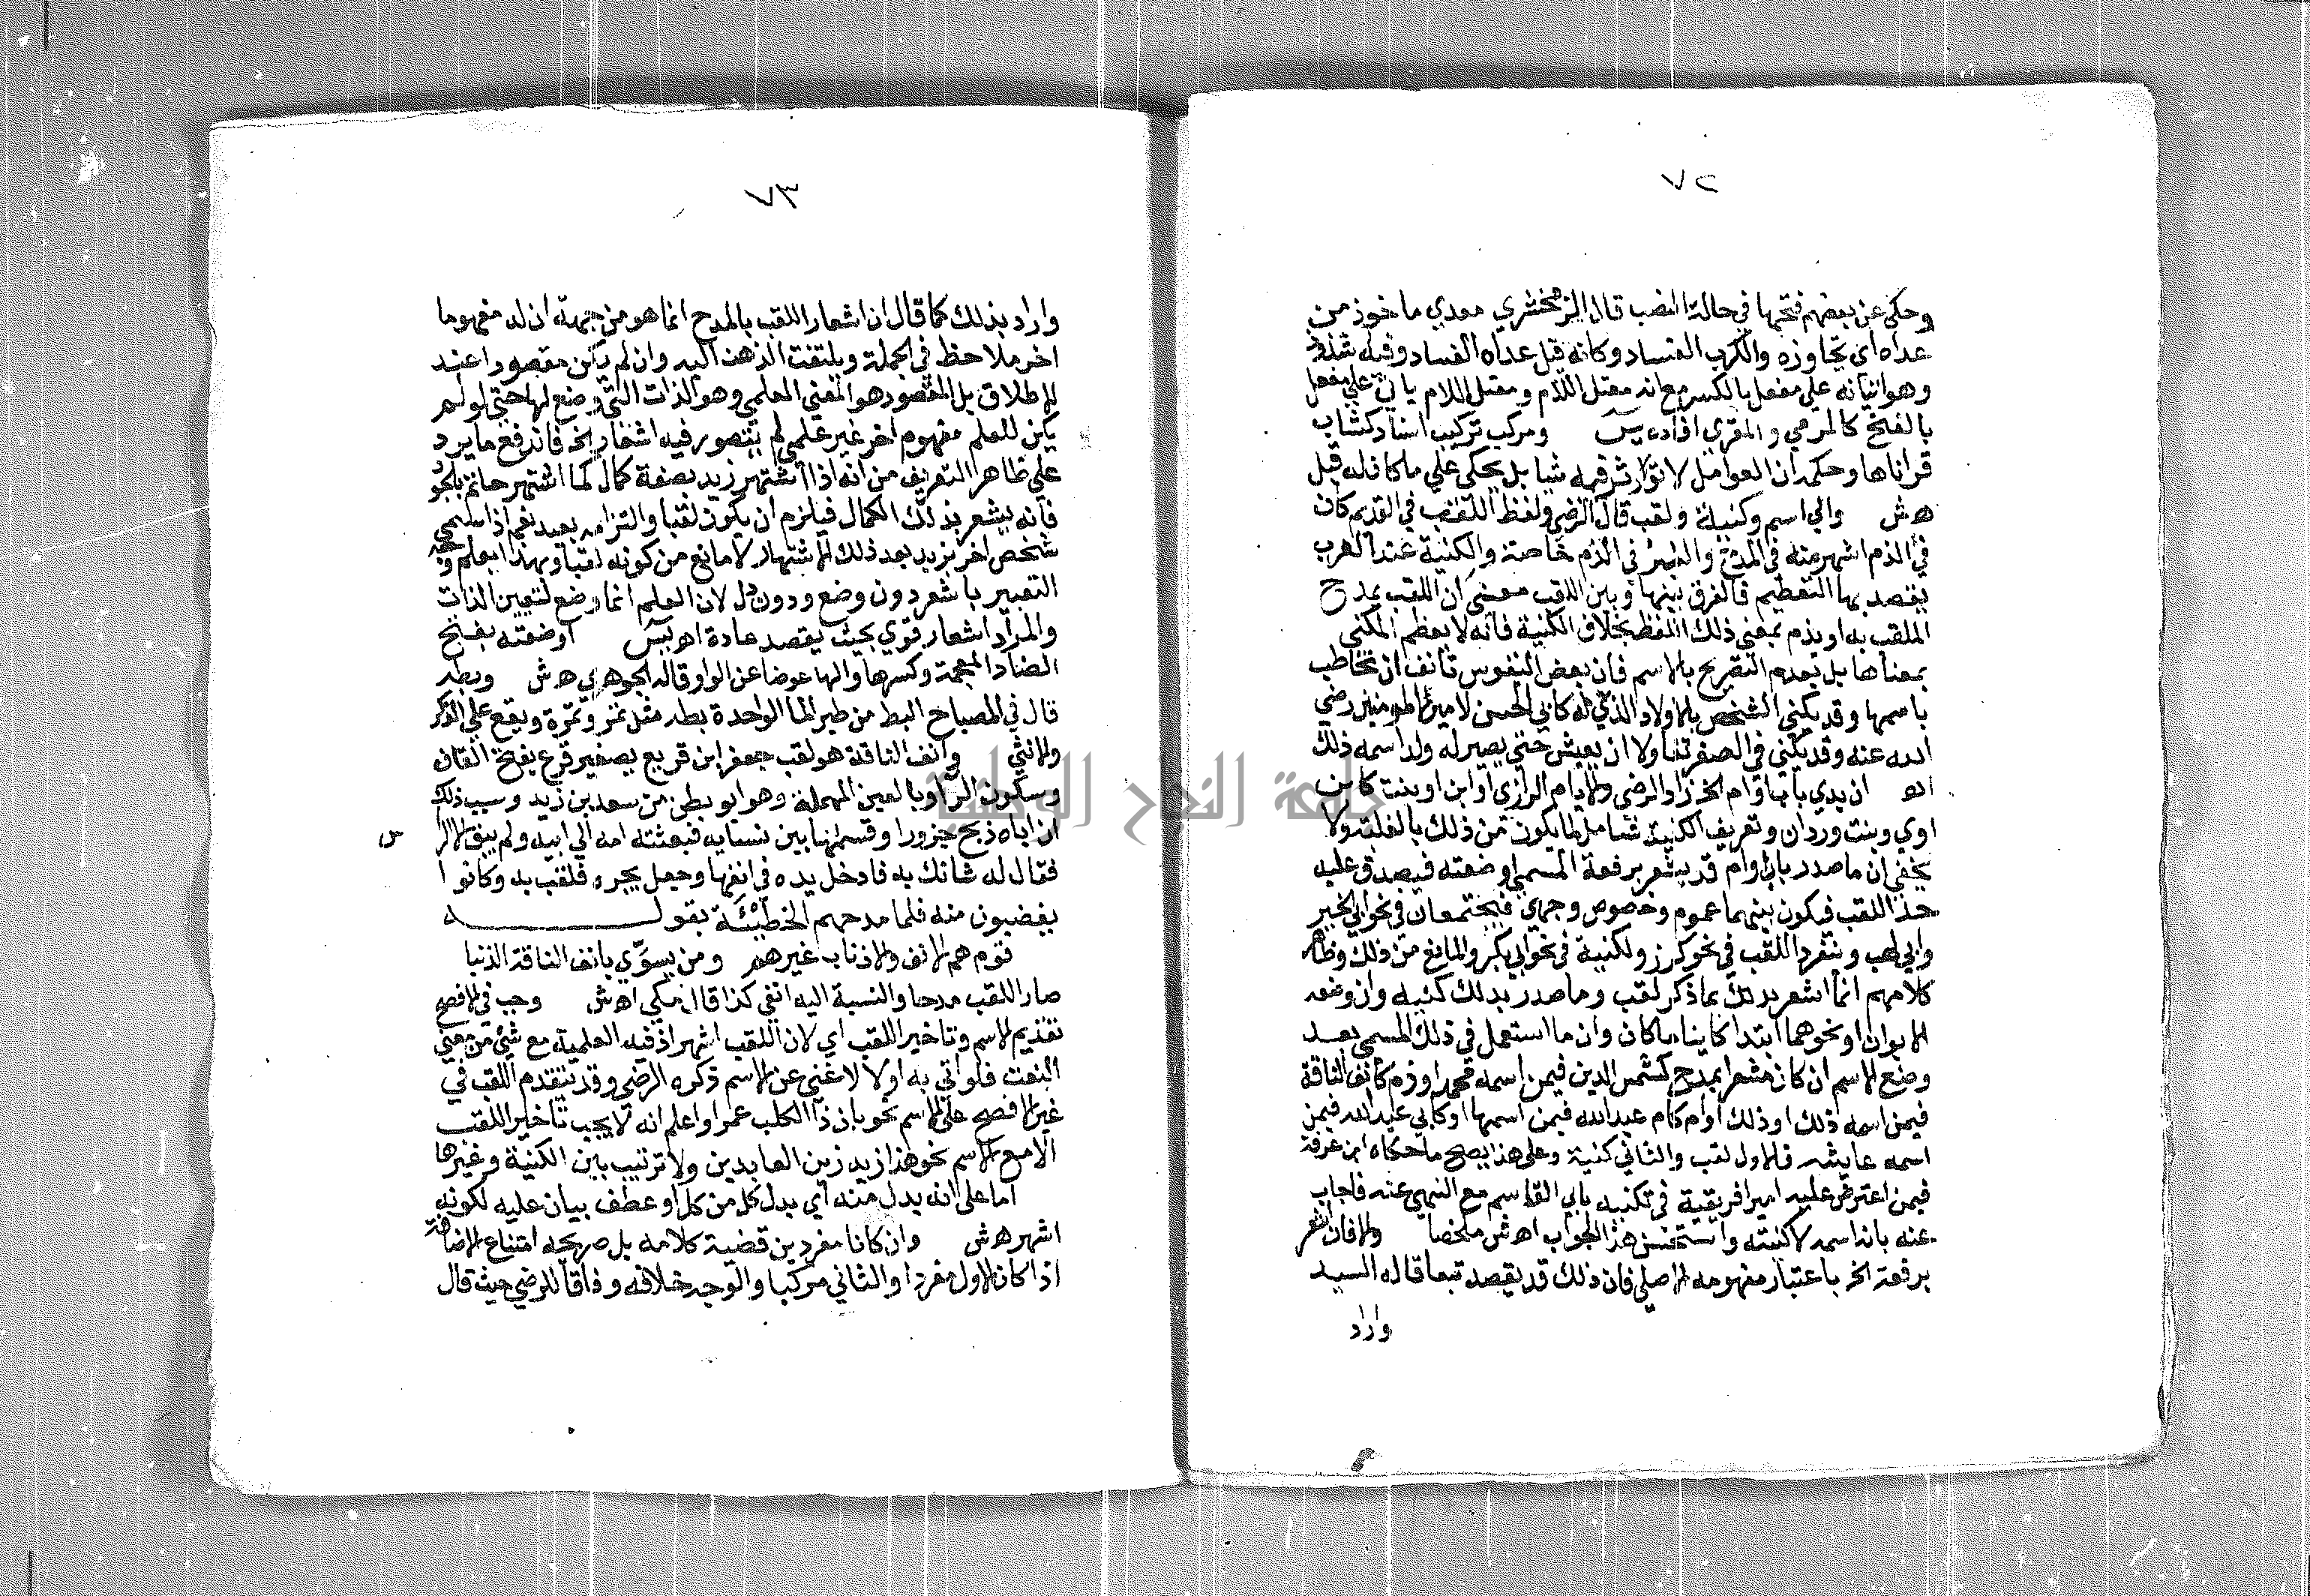 ٧٢
وحكي عن بعضهم فتحها في حالة النصب قال الزمخشري معدي ماخوذ من
عداه اي تجاوزه والكرب الفساد وكانه قيل عداه الفساد وفيه شذوذ
وهو اتيانه علي مفعل بالكسر مع انه معتل اللام ومعتل اللام ياتي علي مفعل
بالفتح كالمرمي والمقري افاده يس ومركب تركيب اسناد كشاب
قرناها وحكمه ان العوامل لا تؤثر فيه شيا بل يحكي علي ما كان له قبل
اه ش والي اسم وكنية ولقب قال الرضي ولفظ اللقب في القديم كان
في الذم اشهر منه في المدح والنبز في الذم خاصة والكنية عند العرب
يقصد بها التعظيم فالفرق بينها وبين اللقب معني ان اللقب يمدح
الملقب به او يذم بمعني ذلك اللفظ بخلاف الكنية فانه لا يعظم المكني
بمعناها بل بعدم التصريح بالاسم فان بعض النفوس تانف ان تخاطب
باسمها وقد يكني الشخص بالاولاد الذي له كابي الحسن لامير المومنين رضي
الله عنه وقد يكني في الصغر تفاولا ان يعيش حتي يصير له ولد اسمه ذلك
اه ان بدي باب او ام الخ زاد الرضي والامام الرازي او ابن او بنت كابن
اوي وبنت وردان وتعريف الكنية شامل لما يكون من ذلك بالغلبة ولا
يخفي ان ما صدر باب او ام قد يشعر برفعة المسمي او ضعته فيصدق عليه
حد اللقب فيكون بينهما عموم وخصوص وجهي فيجتمعان في نحو ابي الخير
وابي لهب وينفرد اللقب في نحو كرز ولكنية في نحو ابي بكر والمانع من ذلك وظاهر
كلامهم انما اشعر بذلك بما ذكر لقب وما صدر بذلك كنية وان وضعه
الابوان او نحوهما ابتدا كاينا ما كان وان ما استعمل في ذلك المسمي بعد
وضع الاسم ان كان مشعرا بمدح كشمس الدين فيمن اسمه محمد او ذم كانف الناقة
فيمن اسمه ذلك او ذلك او ام كام عبد الله فيمن اسمها او كابي عبد الله فيمن
اسمه عايشه فالاول لقب والثاني كنية وعلي هذا يصح ما حكاه ابن عرفة
فيمن اعترض عليه امير افريقية في تكنيه بابي القاسم مع النهي عنه فاجاب
عنه بانه اسمه لا كنيته واستحسن هذا الجواب اه ش ملخصا والا فان اشعر
برفعة الخ باعتبار مفهومه الاصلي فان ذلك قد يقصد تبعا قاله السيد
واراد
٧٣
واراد بذلك كما قال ان اشعار اللقب بالمدح انما هو من جهة ان له مفهوما
اخر ملاحظ في الجملة ويلتفت الذهن اليه وان لم يكن مقصودا عند
الاطلاق بل المقصود هو المعني العلمي وهو الذات التي وضع لها حتي لو لم
يكن للعلم مفهوم اخر غير علمي لم يتصور فيه اشعار الخ فاندفع ما يرد
علي ظاهر التعريف من انه اذا اشتهر زيد بصفة كمال كما اشتهر حاتم بالجود
فانه يشعر بذلك الكمال فيلزم ان يكون لقبا والتزامه بعيد نعم اذا سمي
شخص اخر بزيد بعد ذلك الاشتهار لا مانع من كونه لقبا وبهذا يعلم وجه
التعبير باشعر دون وضع ودون دل لان العلم انما وضع لتعيين الذات
والمراد اشعار قوي بحيث يقصد عادة اه يس او ضعته بفتح
الضاد المعجمة وكسرها والها عوضا عن الواو قاله الجوهري اه ش وبطه
قال في المصباح البط من طير الما الواحدة بطه مثل تمر وتمرة ويقع علي الذكر
والانثي وانف الناقة هو لقب جعفر ابن قريع بصغير قرع بفتح القاف
وسكون الرا وبالعين المهملة وهو ابو بطن من سعد بن زيد وسبب ذلك
ان اباه ذبح جزورا وقسمها بين نسايه فبعثته امه الي ابيه ولم يبق الا الرا س
فقال له شانك به فادخل يده في انفها وجعل يجره فلقب به وكانوا
يغضبون منه فلما مدحهم الخطيئة بقوله
قوم هم الانف والاذناب غيرهم ومن يسوي بانف الناقة الذنبا
صار اللقب مدحا والنسبة اليه انفي كذا قال مكي اه ش وجب في الافصح
تقديم الاسم وتاخير اللقب اي لان اللقب اشهر اذ فيه العلمية مع شئ من معني
النعت فلو اتي به اولا لاغني عن الاسم ذكره الرضي وقد يتقدم اللقب في
غير الافصح علي الاسم نحو بان ذا الكلب عمرا واعلم انه لا يجب تاخير اللقب
الا مع الاسم نحو هذا زيد زين العابدين ولا ترتيب بين الكنية وغيرها
اما علي انه بدل منه اي بدل كل من كل او عطف بيان عليه لكونه
اشهر اه ش وان كانا مفردين قضية كلامه بل صريحه امتناع الاضافة
اذا كان الاول مفردا والثاني مركبا والوجه خلافه وفاقا للرضي حيث قال
جامعة النجاح الوطنية